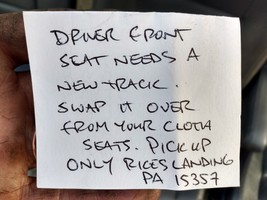 DRIVER FRONT
SEAT NEEDS A
NEW TRACK.
SWAP IT OVER
FROM YOUR CLOTH
SEATS. PICK UP
ONLY RICES LANDING
PA 15357